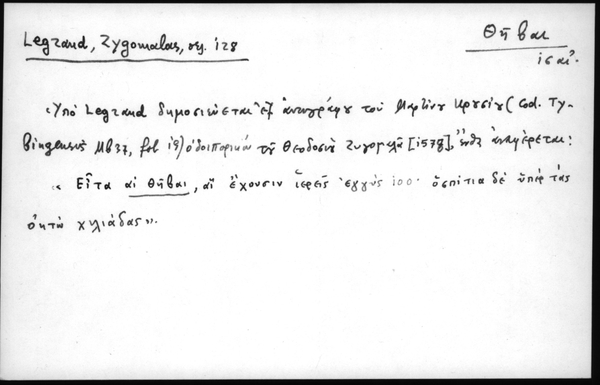 Legrand, Zygomalas, σελ. 128
Θῆβαι
ις αἰ.
«Ὑπὸ Legrand δημοσιεύεται ἐξ ἀντιγράφου τοῦ Μαρτίνου Κρουσίου (Cod. Ty-
bingensis Mb 37, fol ) ὁδοιπορικὸν τοῦ Θεοδοσίου Ζυγομαλᾶ [1578], ἔνθα ἀναφέρεται:
« Εἶτα αἱ Θῆβαι, αἳ ἔχουσιν ἱερεῖς ἐγγὺς 100· ὁσπίτια δὲ ὑπὲρ τὰς
ὀκτὼ χιλιάδας».